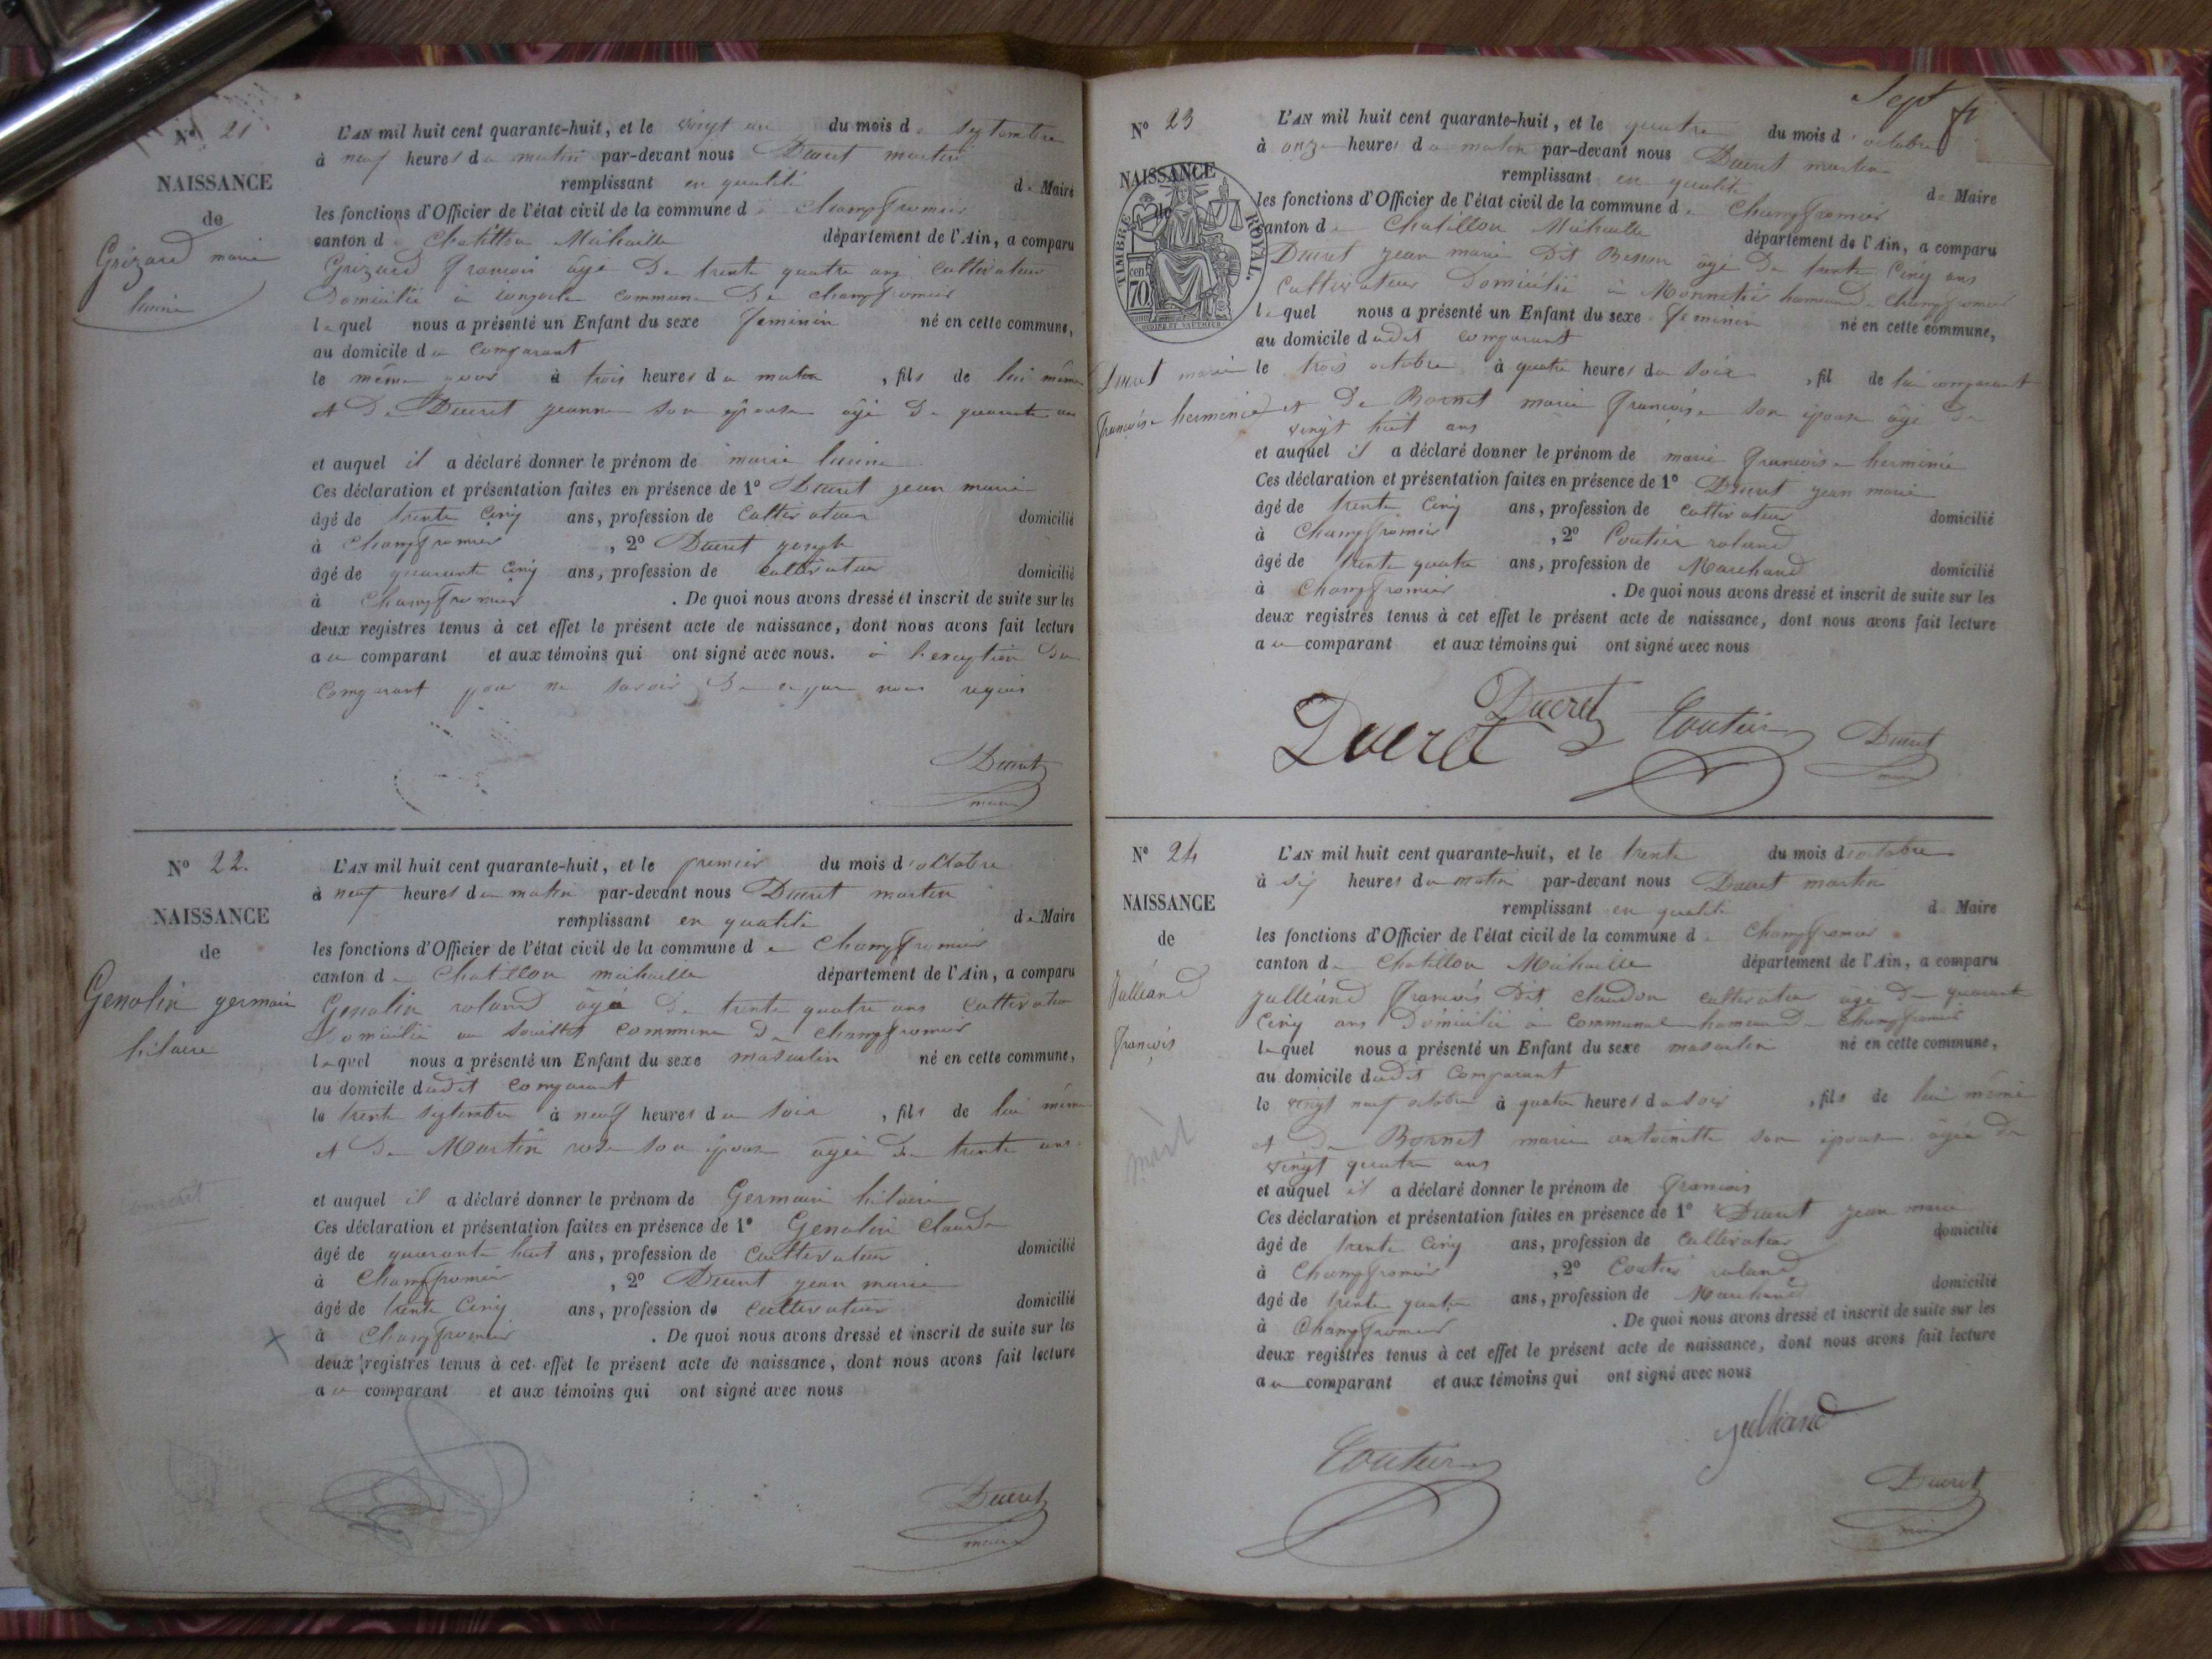 N° 21
NAISSANCE
de
Grizard marie
lucine
L'AN mil huit cent quarante-huit, et le vingt un du mois de Septembre
à neuf heures du matin par-devant nous Ducret martin
remplissant en qualité de Maire
les fonctions d'Officier de l'état civil de la commune de Champfromier
canton de Chatillon Michaille département de l'Ain, a comparu
Grizard francois âgé de trente quatre ans cultivateur
Domicilié à commune de champfromier
lequel nous a présenté un Enfant du sexe feminin né en cette commune,
au domicile du comparant
le même jour à trois heures du matin, fils de lui même
et de Ducret jeanne son épouse âgé de quarante ans
et auquel il a déclaré donner le prénom de marie lucine
Ces déclaration et présentation faites en présence de 1° Ducret jean marie
âgé de trente cinq ans, profession de cultivateur domicilié
à Champfromier, 2° Ducret joseph
âgé de quarante cinq ans, profession de cultivateur domicilié
à Champfromier. De quoi nous avons dressé et inscrit de suite sur les
deux registres tenus à cet effet le présent acte de naissance, dont nous avons fait lecture
au comparant et aux témoins qui ont signé avec nous. à l'exception du
comparant pour ne savoir de ce par nous requis
Ducret
maire
N° 22.
NAISSANCE
de
Genolin germain
hilaire
L'AN mil huit cent quarante-huit, et le premier du mois d'octobre
à neuf heures du matin par-devant nous Ducret martin
remplissant en qualité de Maire
les fonctions d'Officier de l'état civil de la commune de Champfromier
canton de Chatillon michaille département de l'Ain, a comparu
Genolin roland âgé de trente quatre ans cultivateur
Domicilié au commune de champfromier
lequel nous a présenté un Enfant du sexe masculin né en cette commune,
au domicile dudit comparant
le trente septembre à neuf heures du soir, fils de lui même
et de Martin rose son épouse âgée de trente ans
et auquel il a déclaré donner le prénom de Germain hilaire
Ces déclaration et présentation faites en présence de 1° Genolin Claude
âgé de quarante huit ans, profession de cultivateur domicilié
à Champfromier, 2° Ducret jean marie
âgé de trente cinq ans, profession de cultivateur domicilié
à Champfromier. De quoi nous avons dressé et inscrit de suite sur les
deux registres tenus à cet effet le présent acte de naissance, dont nous avons fait lecture
au comparant et aux témoins qui ont signé avec nous
Ducret
maire
Sept
N° 23
NAISSANCE
de
TIMBRE ROYAL.
cent. 70
Ducret marie
françoise herminie
L'AN mil huit cent quarante-huit, et le quatre du mois d'octobre
à onze heures du matin par-devant nous Ducret martin
remplissant en qualité de Maire
les fonctions d'Officier de l'état civil de la commune de Champfromier
canton de Chatillon Michaille département de l'Ain, a comparu
Ducret jean marie dit Besson âgé de trente cinq ans
cultivateur Domicilié à Monnetier hameau de champfromier
lequel nous a présenté un Enfant du sexe feminin né en cette commune,
au domicile dudit comparant
le trois octobre à quatre heures du soir, fil de lui comparant
et de Bornet marie françoise son épouse âgé de
vingt huit ans
et auquel il a déclaré donner le prénom de marie françoise herminie
Ces déclaration et présentation faites en présence de 1° Ducret jean marie
âgé de trente cinq ans, profession de cultivateur domicilié
à Champfromier, 2° Coutier roland
âgé de trente quatre ans, profession de Marchand domicilié
à Champfromier. De quoi nous avons dressé et inscrit de suite sur les
deux registres tenus à cet effet le présent acte de naissance, dont nous avons fait lecture
au comparant et aux témoins qui ont signé avec nous
Ducret
Ducret Coutier Ducret
maire
N° 24
NAISSANCE
de
Julliand
françois
L'AN mil huit cent quarante-huit, et le trente du mois d'octobre
à six heures du matin par-devant nous Ducret martin
remplissant en qualité de Maire
les fonctions d'Officier de l'état civil de la commune de Champfromier
canton de Chatillon Michaille département de l'Ain, a comparu
Julliand françois dit claudon cultivateur âgé de quarante
cinq ans Domicilié à Communal hameau de Champfromier
lequel nous a présenté un Enfant du sexe masculin né en cette commune,
au domicile dudit comparant
le vingt neuf octobre à quatre heures du soir, fils de lui même
et de Bornet marie antoinette son épouse âgée de
vingt quatre ans
et auquel il a déclaré donner le prénom de françois
Ces déclaration et présentation faites en présence de 1° Ducret jean marie
âgé de trente cinq ans, profession de cultivateur domicilié
à Champfromier, 2° Coutier roland
âgé de trente quatre ans, profession de Marchand domicilié
à Champfromier. De quoi nous avons dressé et inscrit de suite sur les
deux registres tenus à cet effet le présent acte de naissance, dont nous avons fait lecture
au comparant et aux témoins qui ont signé avec nous
Julliand
Coutier
Ducret
maire